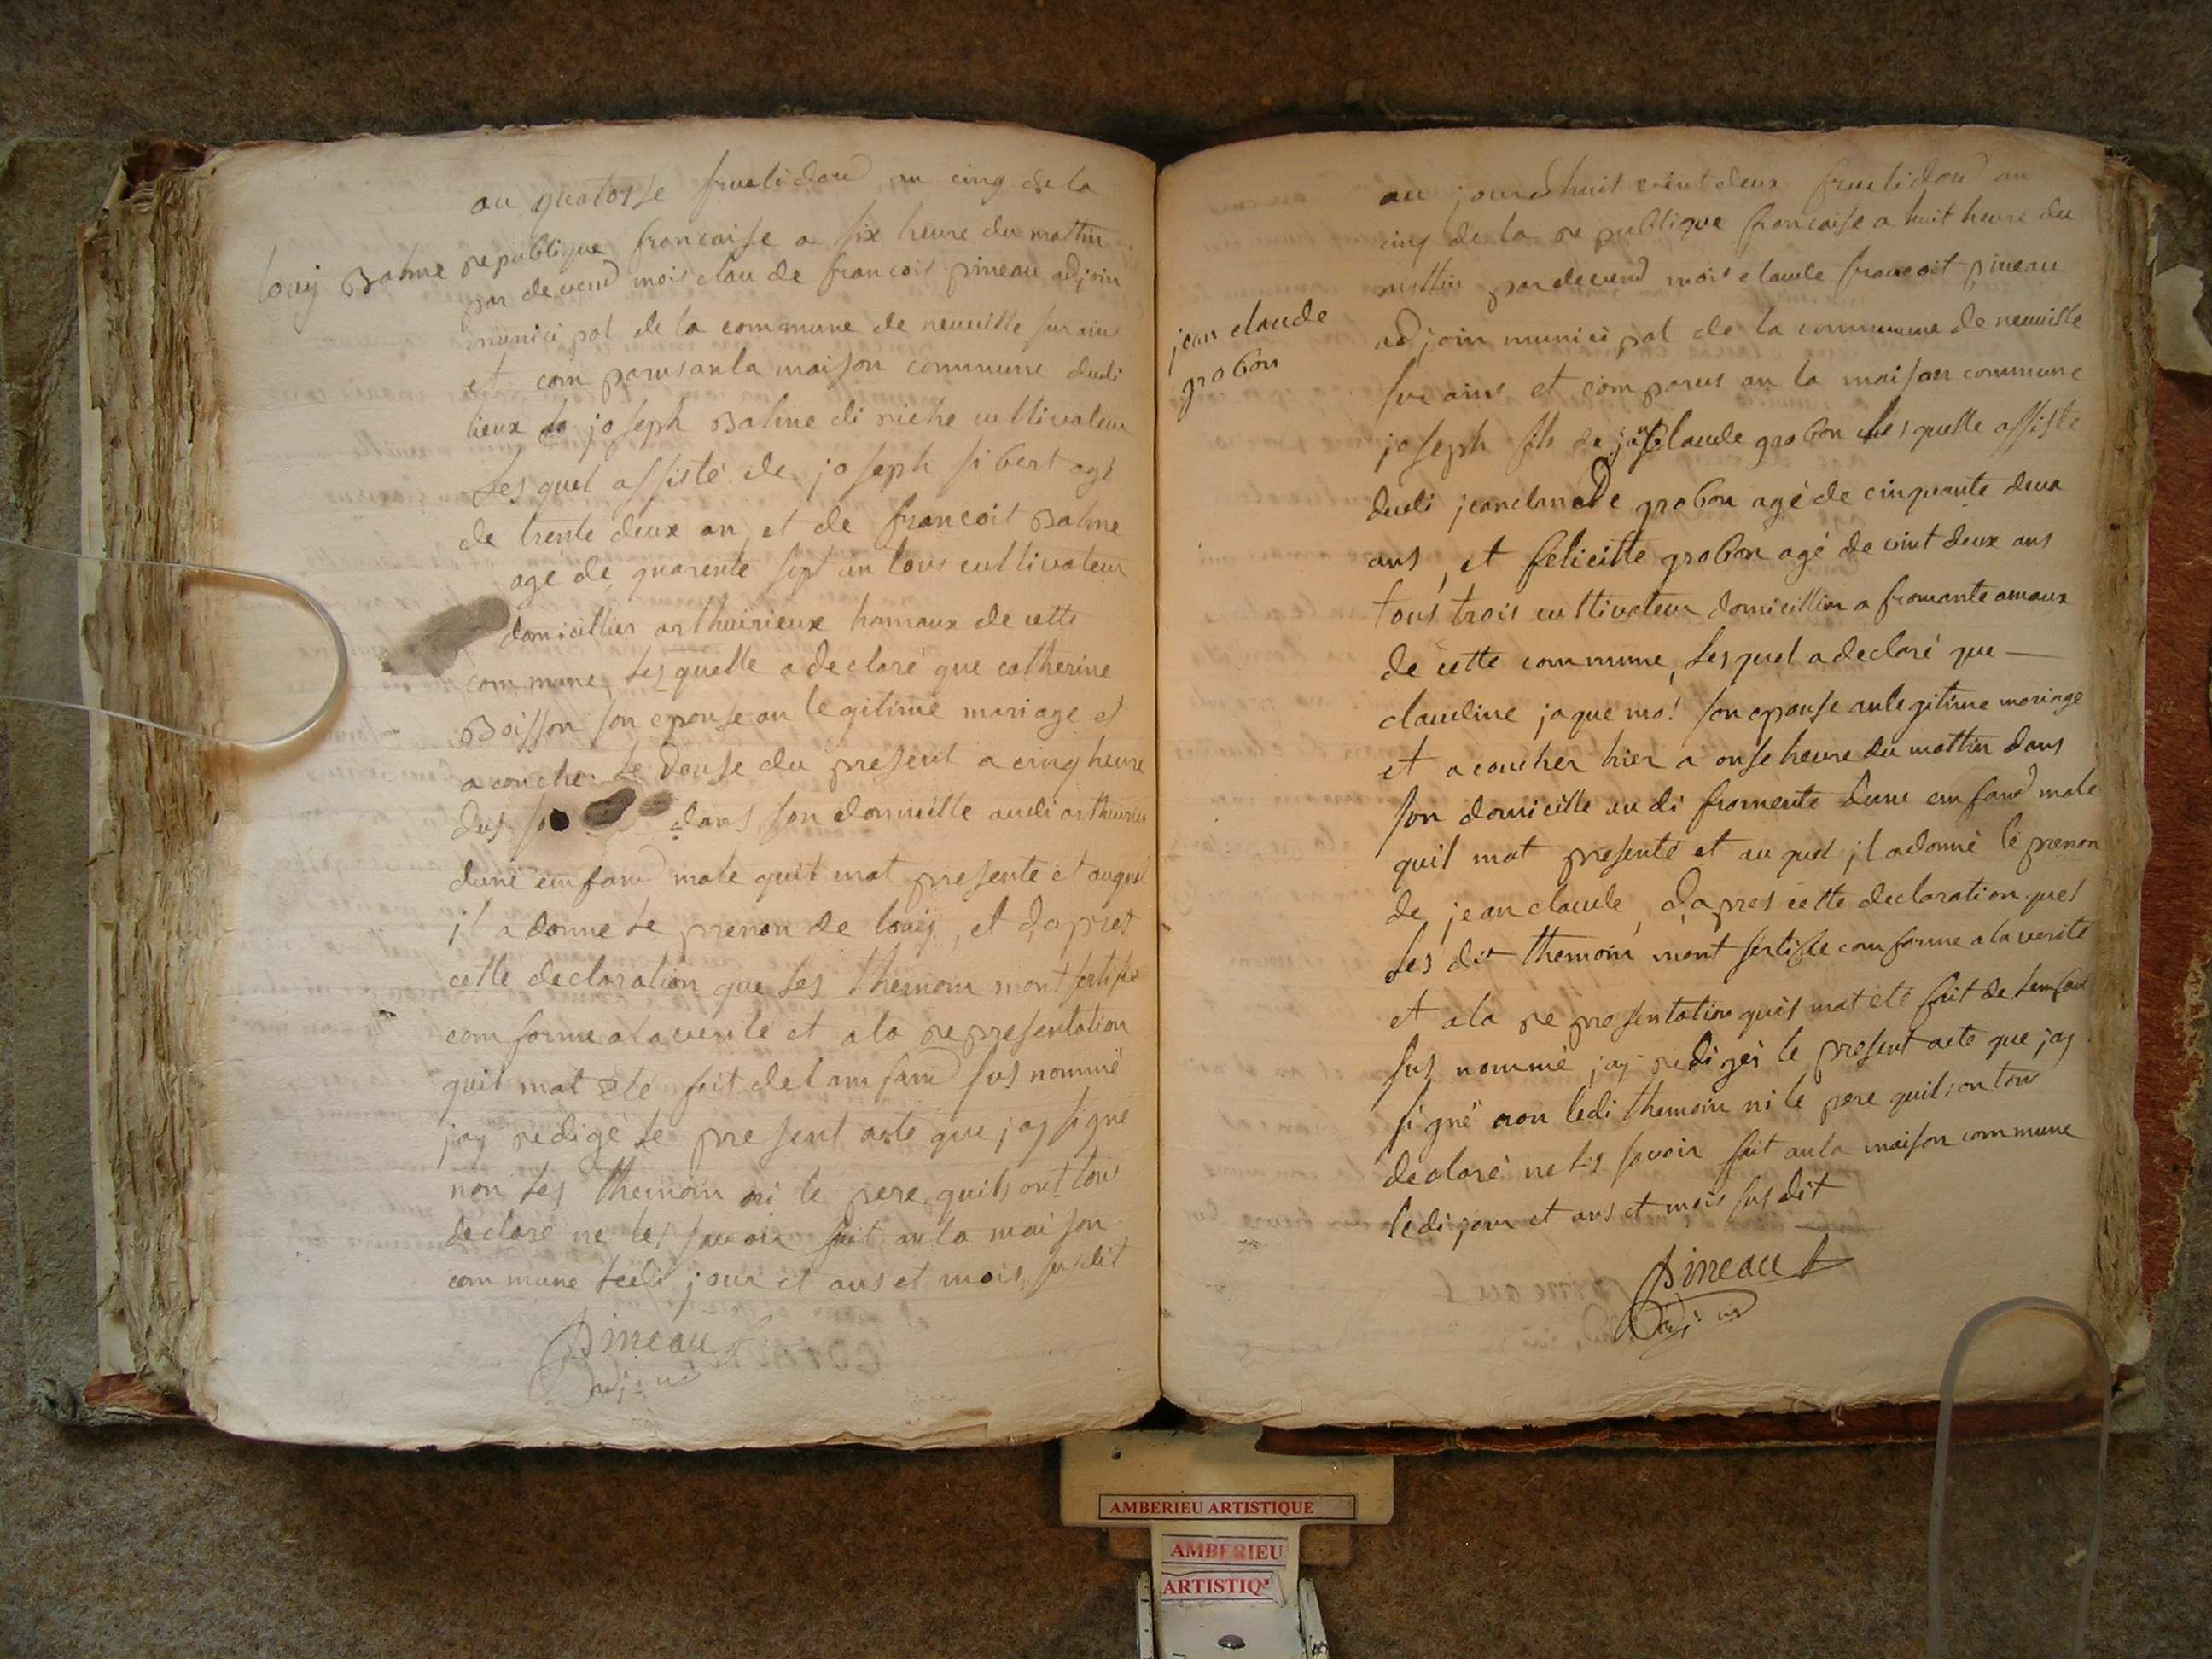 au quatorse fructidor an cinq de la
louij Balme
republique francaise a six heure du mattin
par devend mois claude francois pineau adjoin
municipal de la commune de neuville sur ain
et comparus an la maison commune dudi
lieux joseph Balme di riche cultivateur
Lesquel assisté de joseph sibert agé
de trente deux an et de francoit Balme
agé de quarente sept an tous cultivateur
domicillier a thuirieux hamaux de cette
commune Lesquelle a declaré que catherine
Boisson son epouse an legitime mariage et
a couche Le douse du present a cinq heure
dus dans son domicille audi
dune emfand male quil mat presente et auquel
jl a donne Le prenon de louij, et dapres
cette declaration que Les themoin mont sertifie
comforme a la verité et a la representation
quil mat ete fait de lamfand sus nommé
jay redigé Le present acte que jay signé
non Les themoin ni le pere quils ont tous
declaré ne Les savoir fait an la maison
commune Ledi jour et ans et mois susdit
Pineau
adjoin
au jourdhuit vint deux fructidor an
cinq de la republique francaise a huit heure du
mattin par devend mois claude francoit pineau
jean claude
grobon
adjoin municipal de la commune de neuville
sur ains et comparus an la maison commune
joseph fils de jean claude grobon Lesquelle assiste
dudi jean claude grobon agé de cinquante deux
ans, et felicitte grobon agé de vint deux ans
tous trois cultivateur domicillier a fromante amaux
de cette commune, Lesquel a declaré que
claudine jaquemo! son epouse an legitime mariage
et a coucher hier a onse heure du mattin dans
son domicille au di fromente dune emfand male
quil mat presenté et au quel jl a donné le prenon
de jean claude, dapres cette declaration quel
Les dit themoin mont sertifie comforme a la verité
et a la representation quil mat eté fait de Lemfant
sus nommé jay redigé le present acte que jay
signé non ledi themoin ni le pere quils on tous
declaré ne Les savoir fait an la maison commune
ledi jour et ans et mois susdit
Pineau
adjoin
AMBERIEU ARTISTIQUE
AMBERIEU
ARTISTIQ